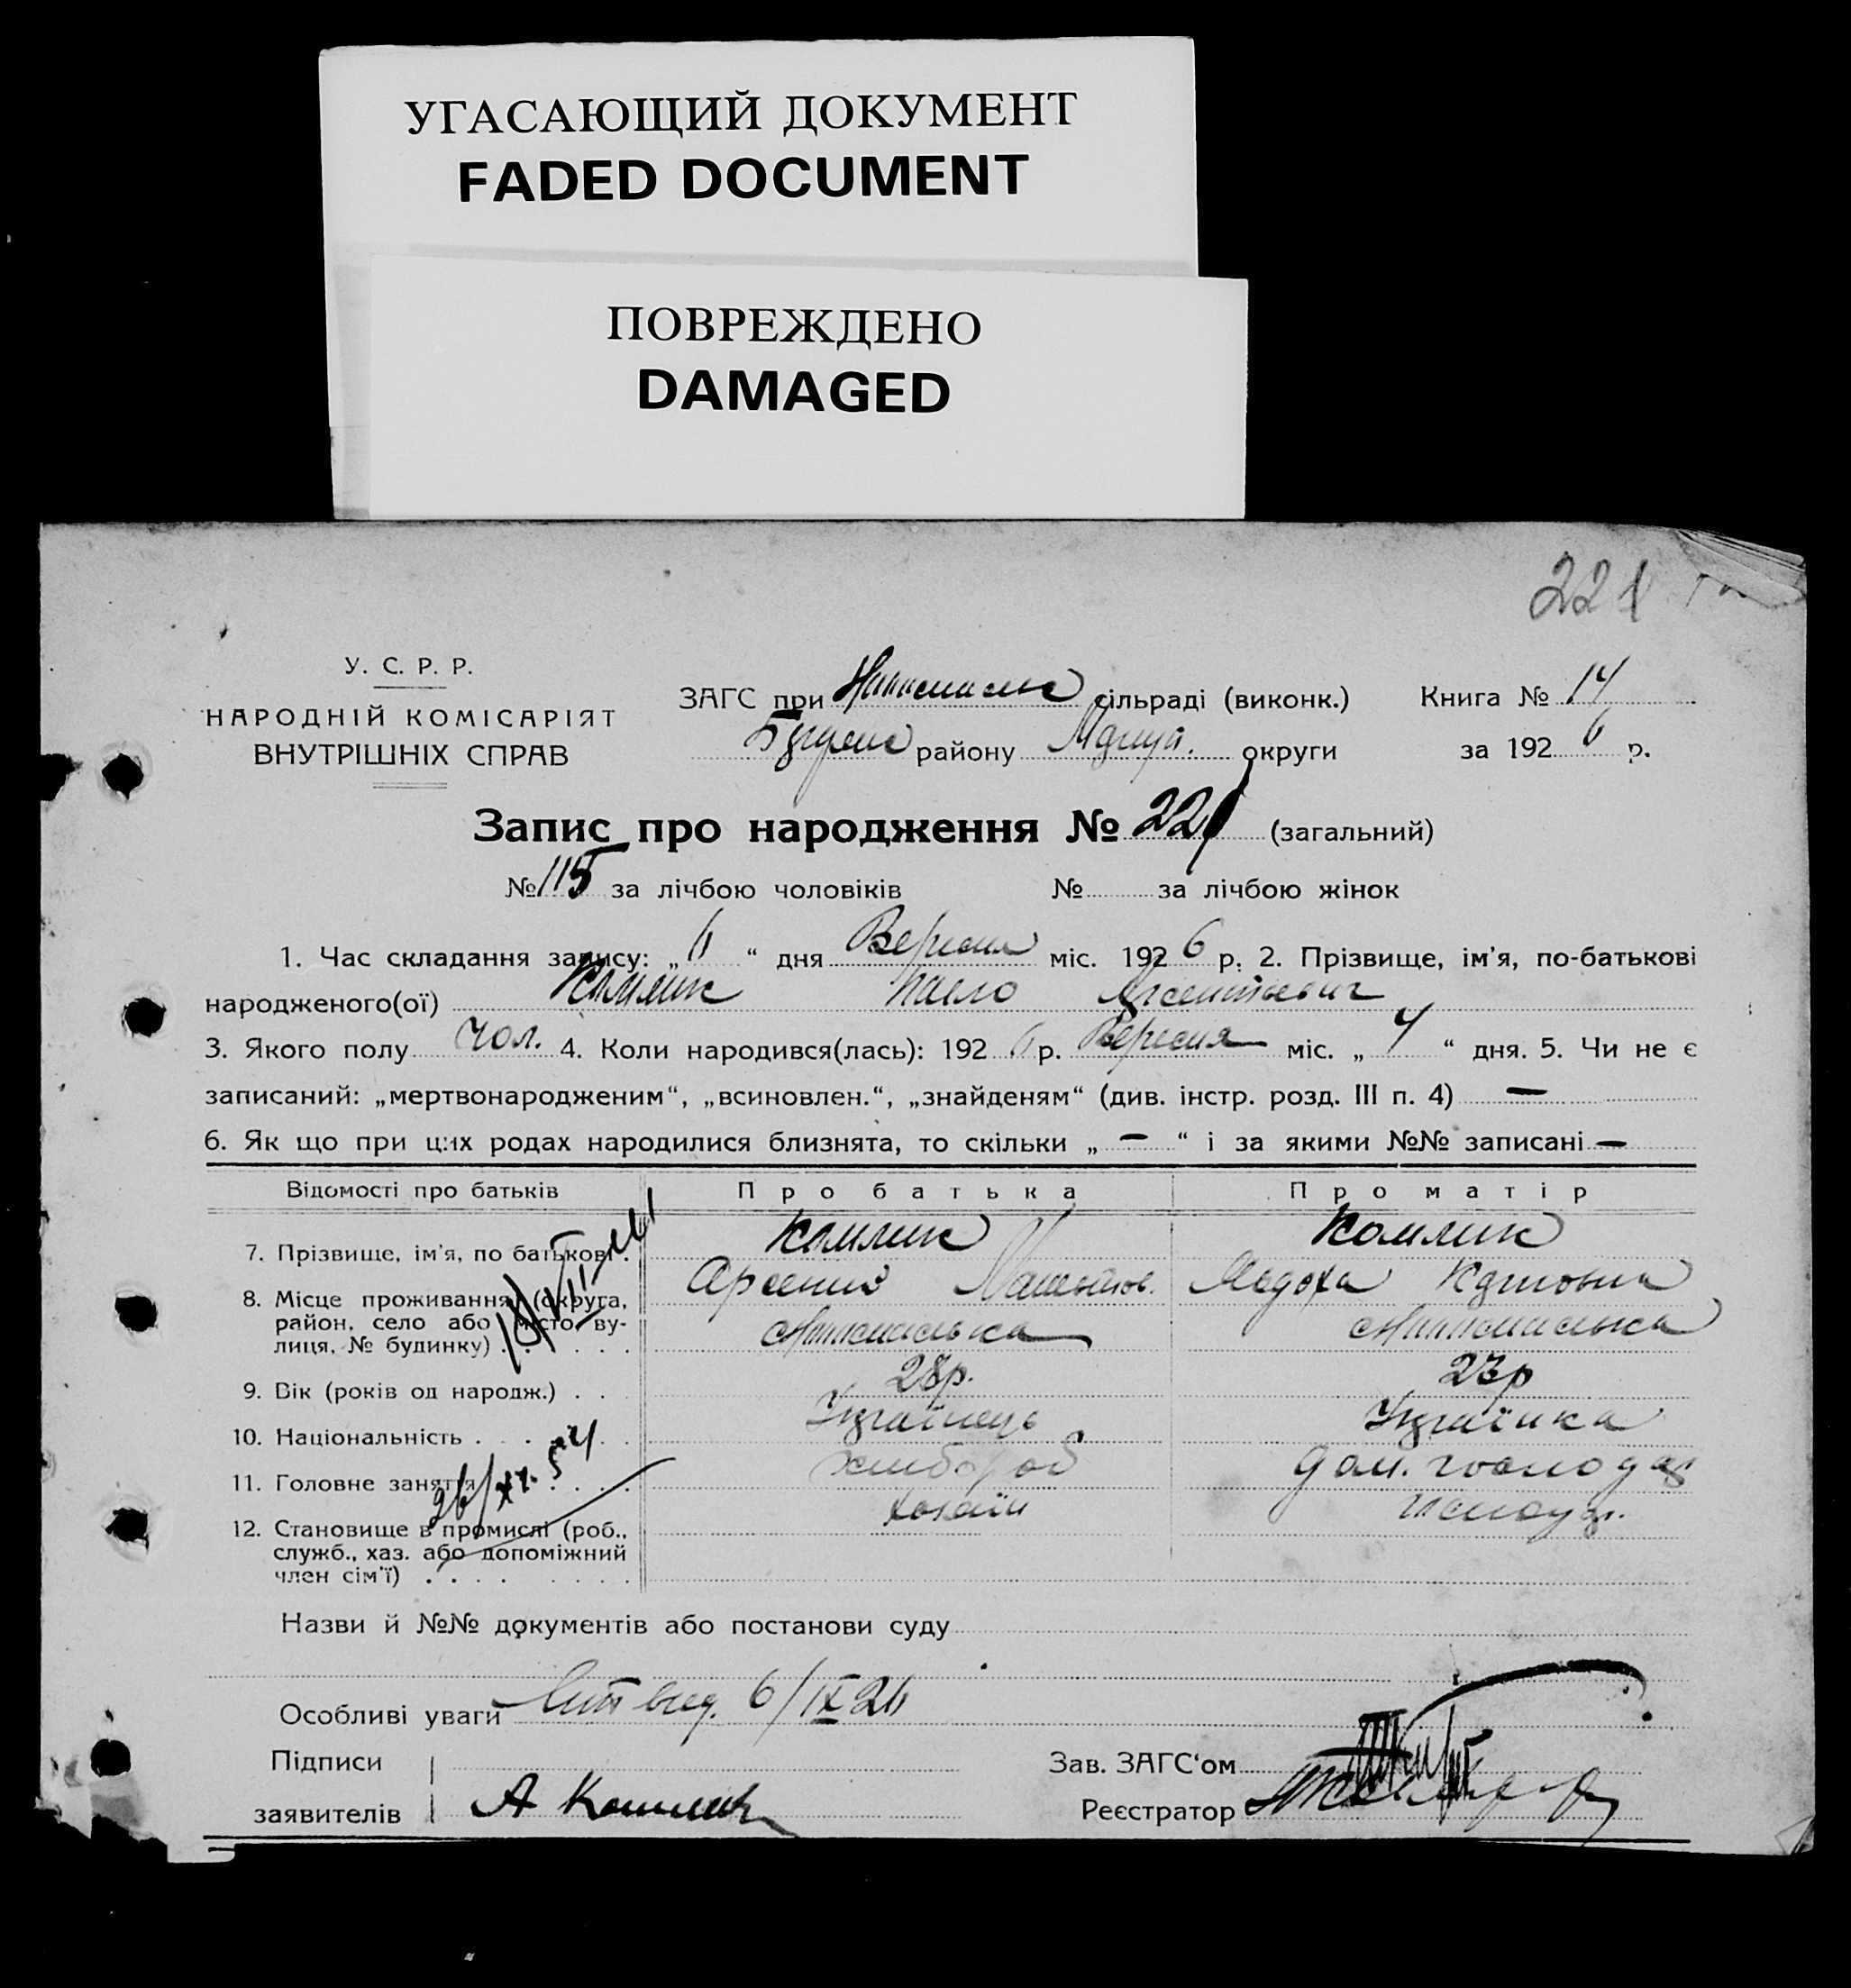 УГАСАЮЩИЙ ДОКУМЕНТ
FADED DOCUMENT
ПОВРЕЖДЕНО
DAMAGED
221
У. С. Р. Р.
НАРОДНІЙ КОМІСАРІЯТ
ВНУТРІШНІХ СПРАВ
ЗАГС при сільраді (виконк.) Книга № 14
району округи за 1926 р.
Запис про народження № 221 (загальний)
№ 115 за лічбою чоловіків № за лічбою жінок
1. Час складання запису: „6“ дня Вересня міс. 1926 р. 2. Прізвище, ім'я, по-батькові
народженого(ої) Комлик Павло Арсентьевич
3. Якого полу чол. 4. Коли народився(лась): 1926 р. Вересня міс. „4“ дня. 5. Чи не є
записаний: „мертвонародженим“, „всиновлен.“, „знайденям“ (див. інстр. розд. III п. 4) —
6. Як що при цих родах народилися близнята, то скільки „—“ і за якими №№ записані —
Відомості про батьків Про батька Про матір
7. Прізвище, ім'я, по батькові Комлик Комлик
8. Місце проживання (округа, Арсений
район, село або місто, ву-
лиця, № будинку)
9. Вік (років од народж.) 28р. 23р
10. Національність Українець Українка
11. Головне заняття хлібороб дом. господар
12. Становище в промислі (роб., хазяїн
служб., хаз. або допоміжний
член сім'ї)
Назви й №№ документів або постанови суду
Особливі уваги 6/IX 26
Підписи Зав. ЗАГС'ом
заявителів А Комлик Реєстратор